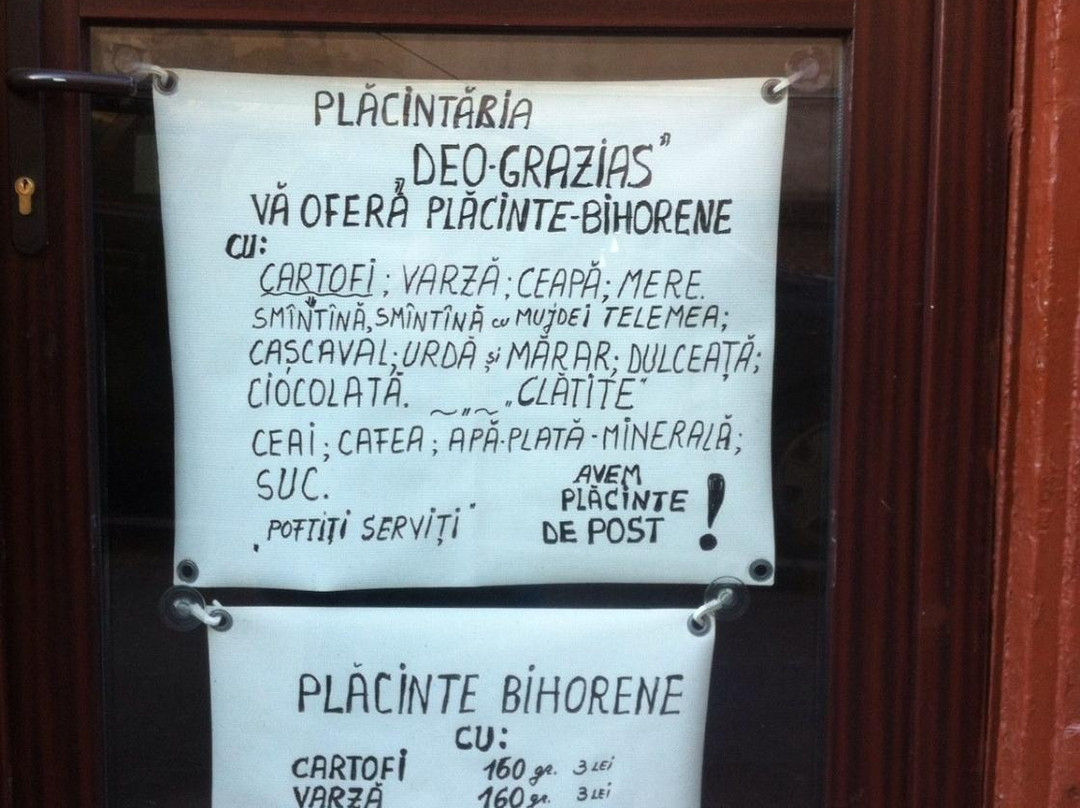 PLĂCINTĂRIA
„DEO-GRAZIAS”
VĂ OFERĂ PLĂCINTE-BIHORENE
CU:
CARTOFI; VARZĂ; CEAPĂ; MERE.
SMÎNTÎNĂ, SMÎNTÎNĂ cu MUJDEI TELEMEA;
CAȘCAVAL; URDĂ și MĂRAR; DULCEAȚĂ;
CIOCOLATĂ. ~"~ „CLĂTITE”
CEAI; CAFEA; APĂ-PLATĂ-MINERALĂ;
SUC.
„POFTIȚI SERVIȚI”
AVEM
PLĂCINTE
DE POST !
PLĂCINTE BIHORENE
CU:
CARTOFI 160 gr. 3 LEI
VARZĂ 160 gr. 3 LEI